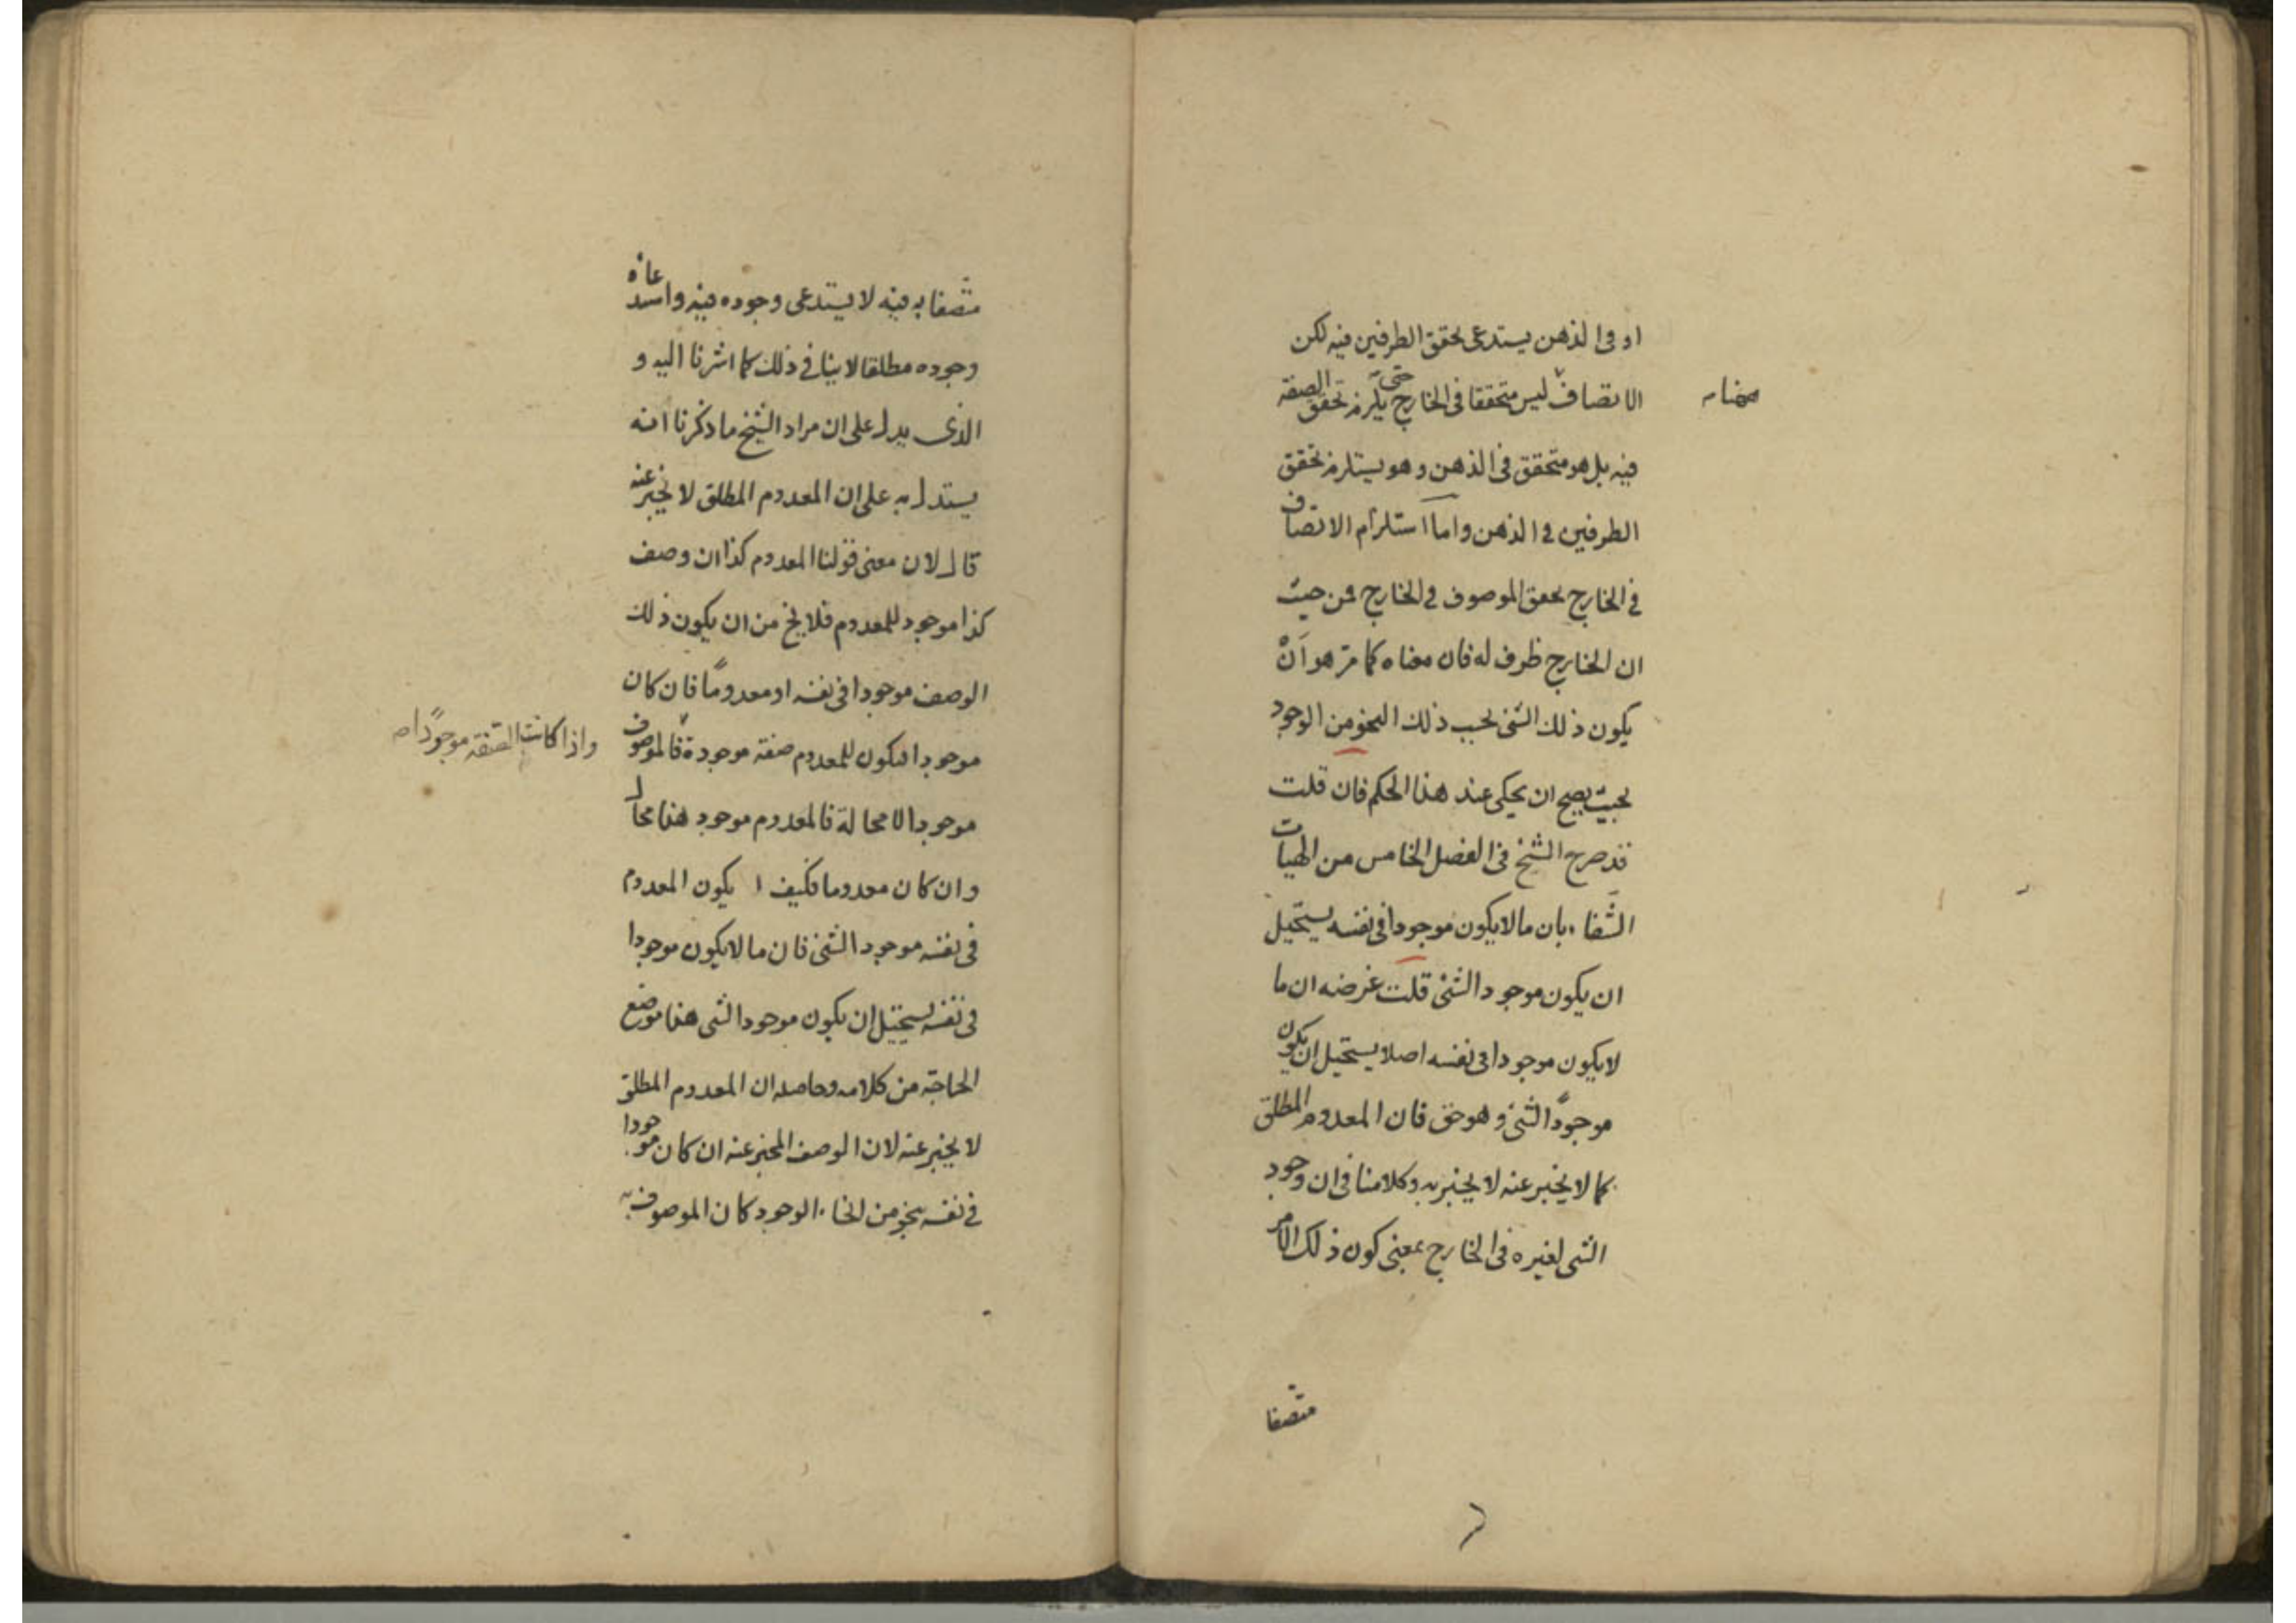 او فى الذهن يستدعى تحقق الطرفين فيه لكن
الاتصاف ليس متحققا فى الخارج حتى يلزم تحقق الصفة
فيه بل هو متحقق فى الذهن وهو يستلزم تحقق
الطرفين فى الذهن واما استلزام الاتصاف
فى الخارج تحقق الموصوف فى الخارج فمن حيث
ان الخارج ظرف له فان معناه كما مر هو ان
يكون ذلك الشئ بحسب ذلك النحو من الوجود
بحيث يصح ان يحكى عنه هذا الحكم فان قلت
قد صرح الشيخ فى الفصل الخامس من الهيات
الشفاء بان ما لا يكون موجودا فى نفسه يستحيل
ان يكون موجودا لشئ قلت غرضه ان ما
لا يكون موجودا فى نفسه اصلا يستحيل ان يكون
موجودًا لشئ وهو حق فان المعدوم المطلق
كما لا يخبر عنه لا يخبر به وكلامنا فى ان وجود
الشى لغيره فى الخارج بمعنى كون ذلك الامر
متصفا
متصفا به فيه لا يستدعى وجوده فيه واستدعاه
وجوده مطلقا لا ينافى ذلك كما اشرنا اليه و
الذى يدل على ان مراد الشيخ ما ذكرنا انه
يستدل به على ان المعدوم المطلق لا يخبر عنه
قال لان معنى قولنا المعدوم كذا ان وصف
كذا موجود للمعدوم فلا يخ من ان يكون ذلك
الوصف موجودا فى نفسه او معدومًا فان كان
موجودا فيكون للمعدوم صفة موجودة فالموصوف
واذا كانت الصفة موجودًا صه
موجود لا محالة فالمعدوم موجود هذا محال
وان كان معدوما فكيف يكون المعدوم
فى نفسه موجودا لشئ فان ما لا يكون موجودا
فى نفسه يستحيل ان يكون موجودا لشى هذا موضع
الحاجة من كلامه وحاصله ان المعدوم المطلق
لا يخبر عنه لان الوصف المخبر عنه ان كان موجودا
فى نفسه بنحو من انحاء الوجود كان الموصوف به